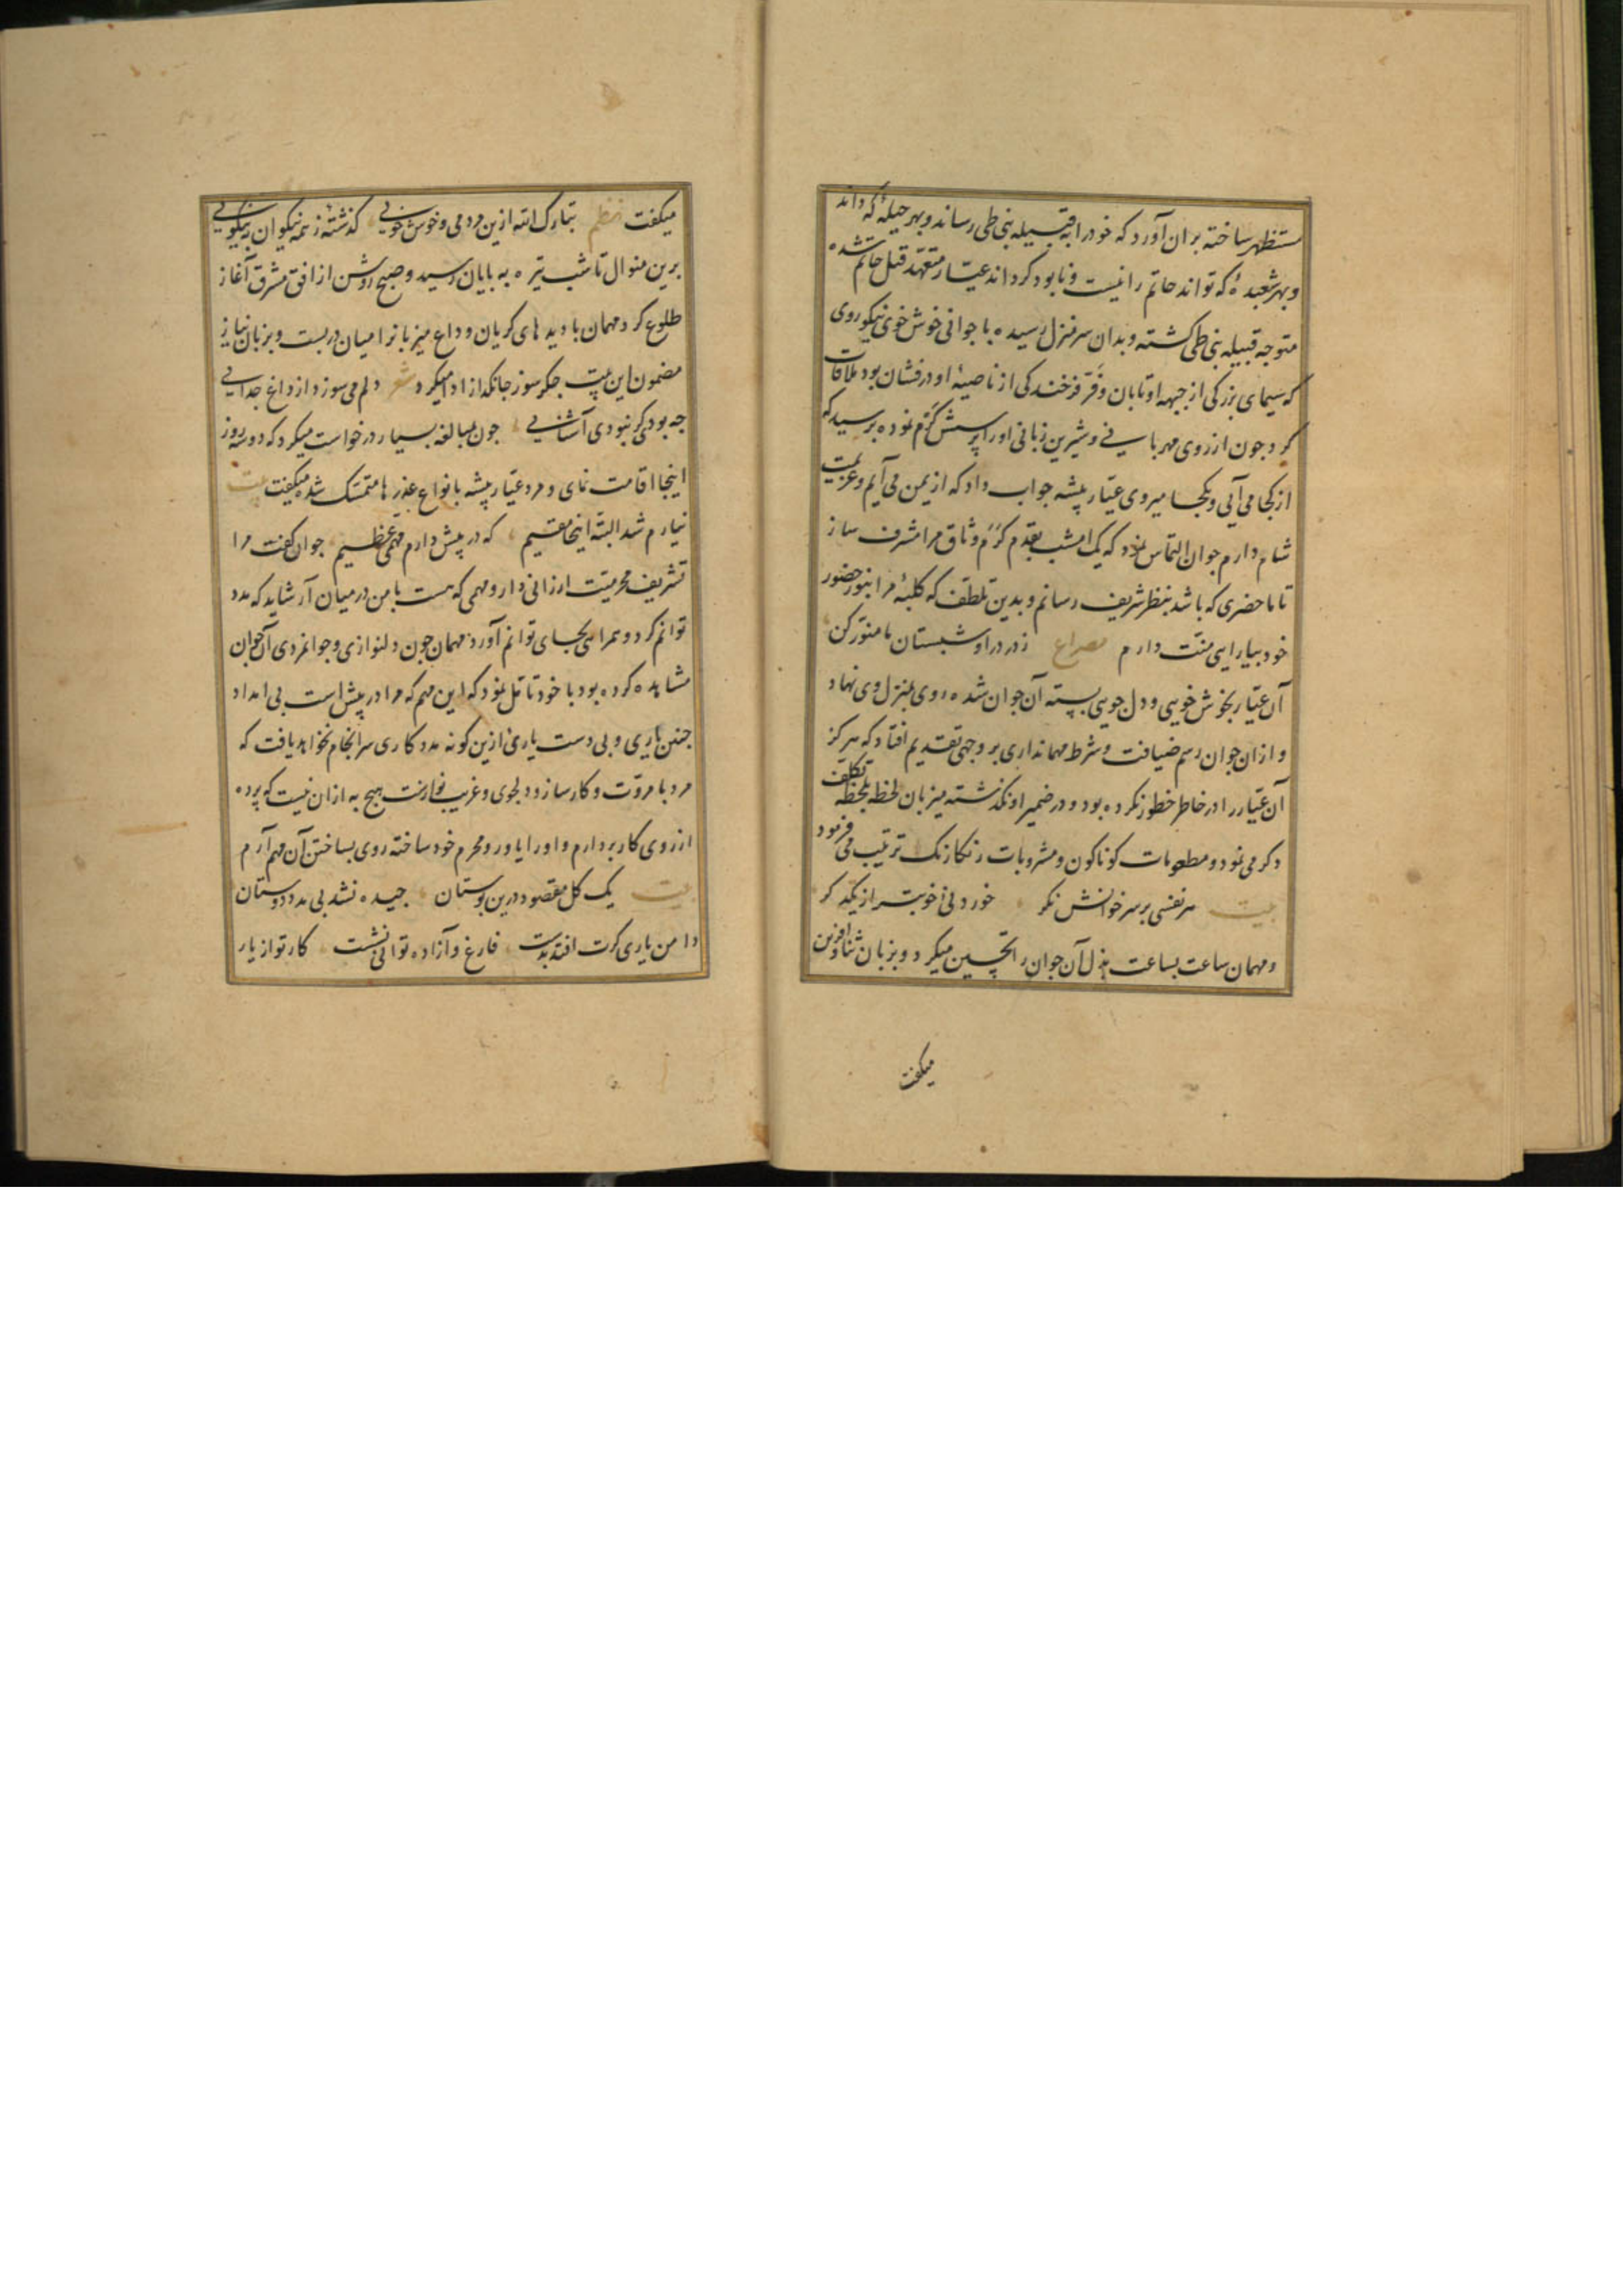 مستظهر ساخته بران آورد که خود را به قبیله بنی طی رساند و بهر حیلهٔ که داند
و بهر شعبدهٔ که تواند حاتم را نیست و نابود کرداند عیار متعهد قتل حاتم شده
متوجه قبیله بنی طی کشته و بدان سرمنزل رسیده با جوانی خوش خوی نیکو روی
که سیمای بزرکی از جبهه او تابان و فر فرخندکی از ناصیهٔ او درفشان بود ملاقات
کرد جون از روی مهربانی و شیرین زبانی او را پرسش کرم نموده پرسید که
از کجا می آیی و بکجا میروی عیار پیشه جواب داد که از یمن می آیم و عزیمت
شام دارم جوان التماس نمود که یک امشب بقدم کرم وثاق مرا مشرف ساز
تا ماحضری که باشد بنظر شریف رسانم و بدین تلطف که کلبهٔ مرا بنور حضور
خود بیارایی منت دارم مصراع ز در درا و شبستان ما منور کن
آن عیار بخوش خویی و دل جویی بسته آن جوان شده روی بمنزل وی نهاد
و ازان جوان رسم ضیافت و شرط مهمانداری بر وجهی تقدیم افتاد که هرکز
آن عیار را در خاطر خطور نکرده بود و در ضمیر او نکذشته میزبان لحظه بلحظه تکلف
دکر می نمود و مطعومات کوناکون و مشروبات رنکارنک ترتیب می فرمود
بیت هر نفسی بر سر خوانش نکر خوردنی خوبتر از یکدکر
و مهمان ساعت بساعت بذل آن جوان را تحسین میکرد و بزبان ثنا و آفرین
میکفت
میکفت نظم تبارک الله ازین مردمی و خوش خویی کذشتهٔ ز همه نیکوان به نیکویی
برین منوال تا شب تیره به پایان رسید و صبح روشن از افق مشرق آغاز
طلوع کرد مهمان با دیدهای کریان وداع میزبانرا میان دربست و بزبان نیاز
مضمون این بیت جکر سوز جانکداز ادا میکرد شعر دلم می سوزد از داغ جدایی
جه بودی کر نبودی آشنایی جون بمبالغه بسیار درخواست میکرد که دو سه روز
اینجا اقامت نمای و مرد عیار پیشه بانواع عذرها متمسک شده میکفت بیت
نیارم شد البته اینجا مقیم که در پیش دارم مهمی عظیم جوان کفت مرا
تشریف محرمیت ارزانی دار و مهمی که هست با من در میان آر شاید که مدد
توانم کرد و همراهی بجای توانم آورد مهمان جون دلنوازی و جوانمردی آن جوان
مشاهده کرده بود با خود تامل نمود که این مهم که مرا در پیش است بی امداد
جنین یاری و بی دست یاری ازین کونه مدد کاری سرانجام نخواهد یافت که
مرد با مروت و کارساز و دلجوی و غریب نوازست هیج به ازان نیست که پرده
از روی کار بردارم و او را یاور و محرم خود ساخته روی بساختن آن مهم آرم
بیت یک کل مقصود درین بوستان جیده نشد بی مدد دوستان
دامن یاری کرت افتد بدست فارغ و آزاده توانی نشست کار تو از یار